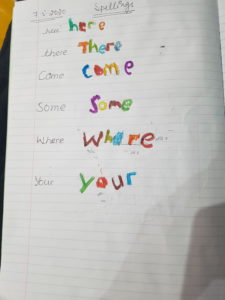 7.5.2020 Spellings
here here
there There
Come come
Some Some
Where Whare
Your your